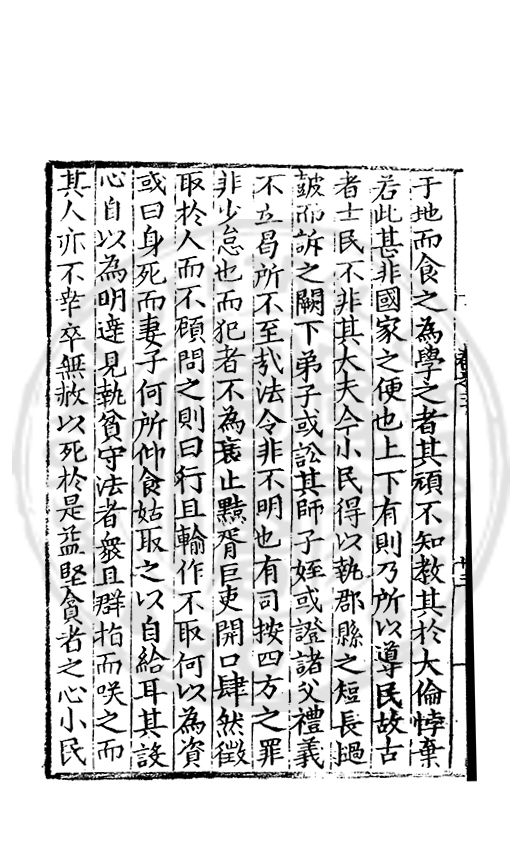 于地而食之為學之者其頑不知教其於大倫悖棄
若此甚非國家之便也上下有則乃所以導民故古
者士民不非其大夫今小民得以執郡縣之短長過
皷而訴之闕下弟子或訟其師子姪或證諸父禮義
不立曷所不至㢤法令非不明也有司按四方之罪
非少怠也而犯者不為衰止黠胥巨吏開口肆然徵
取於人而不顧問之則曰行且輸作不取何以為資
或曰身死而妻子何所仰食姑取之以自給耳其設
心自以為明達見執貧守法者衆且群指而咲之而
其人亦不幸卒無赦以死於是益堅貪者之心小民